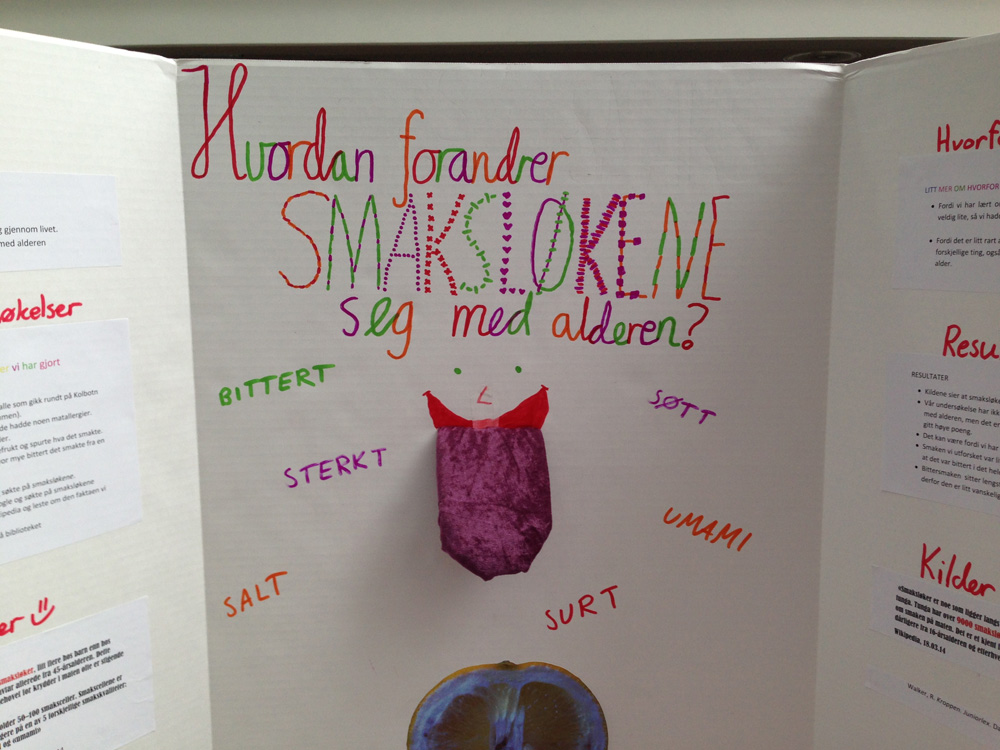 g gjennom livet.
med alderen
økelser
er vi har gjort
alle som gikk rundt på Kolbotn
men).
de hadde noen matallergier.
ier.
efrukt og spurte hva det smakte.
or mye bittert det smakte fra en
søkte på smaksløkene.
ogle og søkte på smaksløkene
ipedia og leste om den faktaen vi
å biblioteket
er
smaksløker, litt flere hos barn enn hos
starter allerede fra 45-årsalderen. Dette
behovet for krydder i maten ofte er stigende
older 50–100 smaksceller. Smakscellene er
gere på en av 5 forskjellige smakskvaliteter:
t og «umami»
Hvordan forandrer
SMAKSLØKENE
seg med alderen?
BITTERT
SØTT
STERKT
UMAMI
SALT
SURT
Hvorfo
LITT MER OM HVORFOR
Fordi vi har lært o
veldig lite, så vi had
Fordi det er litt rart a
forskjellige ting, også
alder.
Resu
RESULTATER
Kildene sier at smaksløk
Vår undersøkelse har ikk
med alderen, men det er
gitt høye poeng.
Det kan være fordi vi har
Smaken vi utforsket var lit
at det var bittert i det hele
Bittersmaken sitter lengst
derfor den er litt vanskelig
Kilder
«Smaksløker er noe som ligger langs
tunga. Tunga har over 9000 smaksløk
om smaken på maten. Det er et kjent f
dårligere fra 16-årsalderen og etterhve
Wikipedia, 18.03.14
Walker, R. Kroppen. Juniorlex. Da